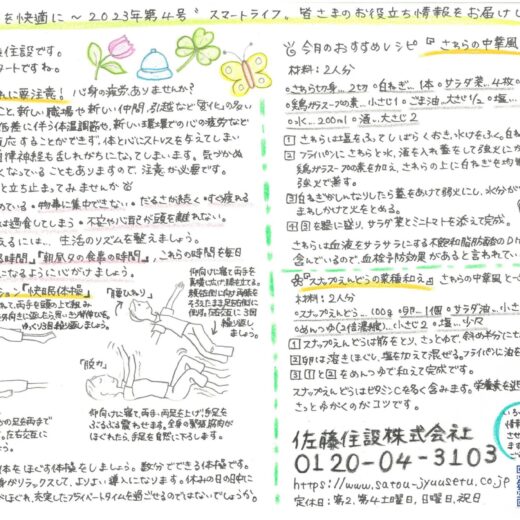 を快適に ～ 2023年第4号〟スマートライフ。皆さまのお役立ち情報をお届けし
住設です。
タートですね。
れに要注意! 心身の疲労ありませんか?
こと、新しい職場や新しい仲間、引越など変化の多い
低差に伴う体温調節や、新しい環境での心の疲労など
反応することができず、体と心にストレスを与えてしまい
自律神経も乱れがちになってしまいます。気づかぬ
くなっていることもありますので、注意が必要です。
と立ち止まってみませんか
めている・物事に集中できない・だるさが続く・すぐ疲れる
は過食してしまう・不安や心配が頭を離れない。
えるには… 生活のリズムを整えましょう。
る時間」「朝昼夕の食事の時間」、これらの時間を毎日
になるように心がけましょう。
ション「快眠体操」
「腰ひねり」
仰向けに寝て両手を
真横に広げ膝を立てる。
倒す。左右交互に3回
繰り返し
ましょう。
「脱力」
仰向けに寝て両手、両足を上げ、手足を
ぶるぶる震わせます。全身の緊張、筋肉が
ほぐれたら、手足を自然に下ろします。
の足を両手で
左右交互に
う。
体をほぐす体操をしましょう。数分でできる体操です。
身がリラックスして、よりよい導入になります。休みの日の日中に
ほぐれ、充実したプライベートタイムを過ごせるのではないでしょうか。
今月のおすすめレシピ『さわらの中華風
材料:2人分
さわら切身…2切 白ねぎ…1本 サラダ菜…4枚
鶏ガラスープの素…小さじ1 ごま油…大さじ1/2 塩…
水…200ml 酒…大さじ2
1 さわらは塩をふってしばらくおき、水けをふく。白ね
2 フライパンにさわらと水、酒を入れ蓋をして強火にか
鶏ガラスープの素を加え、さわらの上に白ねぎを
強火で蒸す。
3 白ねぎがしんなりしたら蓋をあけて弱火にし、水分が
まわしかけて火をとめる。
4 3を器に盛り、サラダ菜とミニトマトを添えて完成。
さわらは血液をサラサラにする不飽和脂肪酸のD
含んでいるので、血栓予防効果があると言われてい
『スナップえんどうの菜種和え』さわらの中華風と一
材料:2人分
スナップえんどう…100g 卵…1個 サラダ油…小さ
めんつゆ(2倍濃縮)…小さじ2 塩…少々
1 スナップえんどうは筋をとり、さっとゆで、斜め半分にち
2 卵は溶きほぐし、塩を加えて混ぜる。フライパンに油を
3 1と2をめんつゆで和えて完成です。
スナップえんどうはビタミンCを多く含みます。栄養素を逃
さっとゆがくのがコツです。
佐藤住設株式会社
0120-04-3103
https://www.satou-jyuusetu.co.jp
定休日:第2、第4土曜日、日曜日、祝日